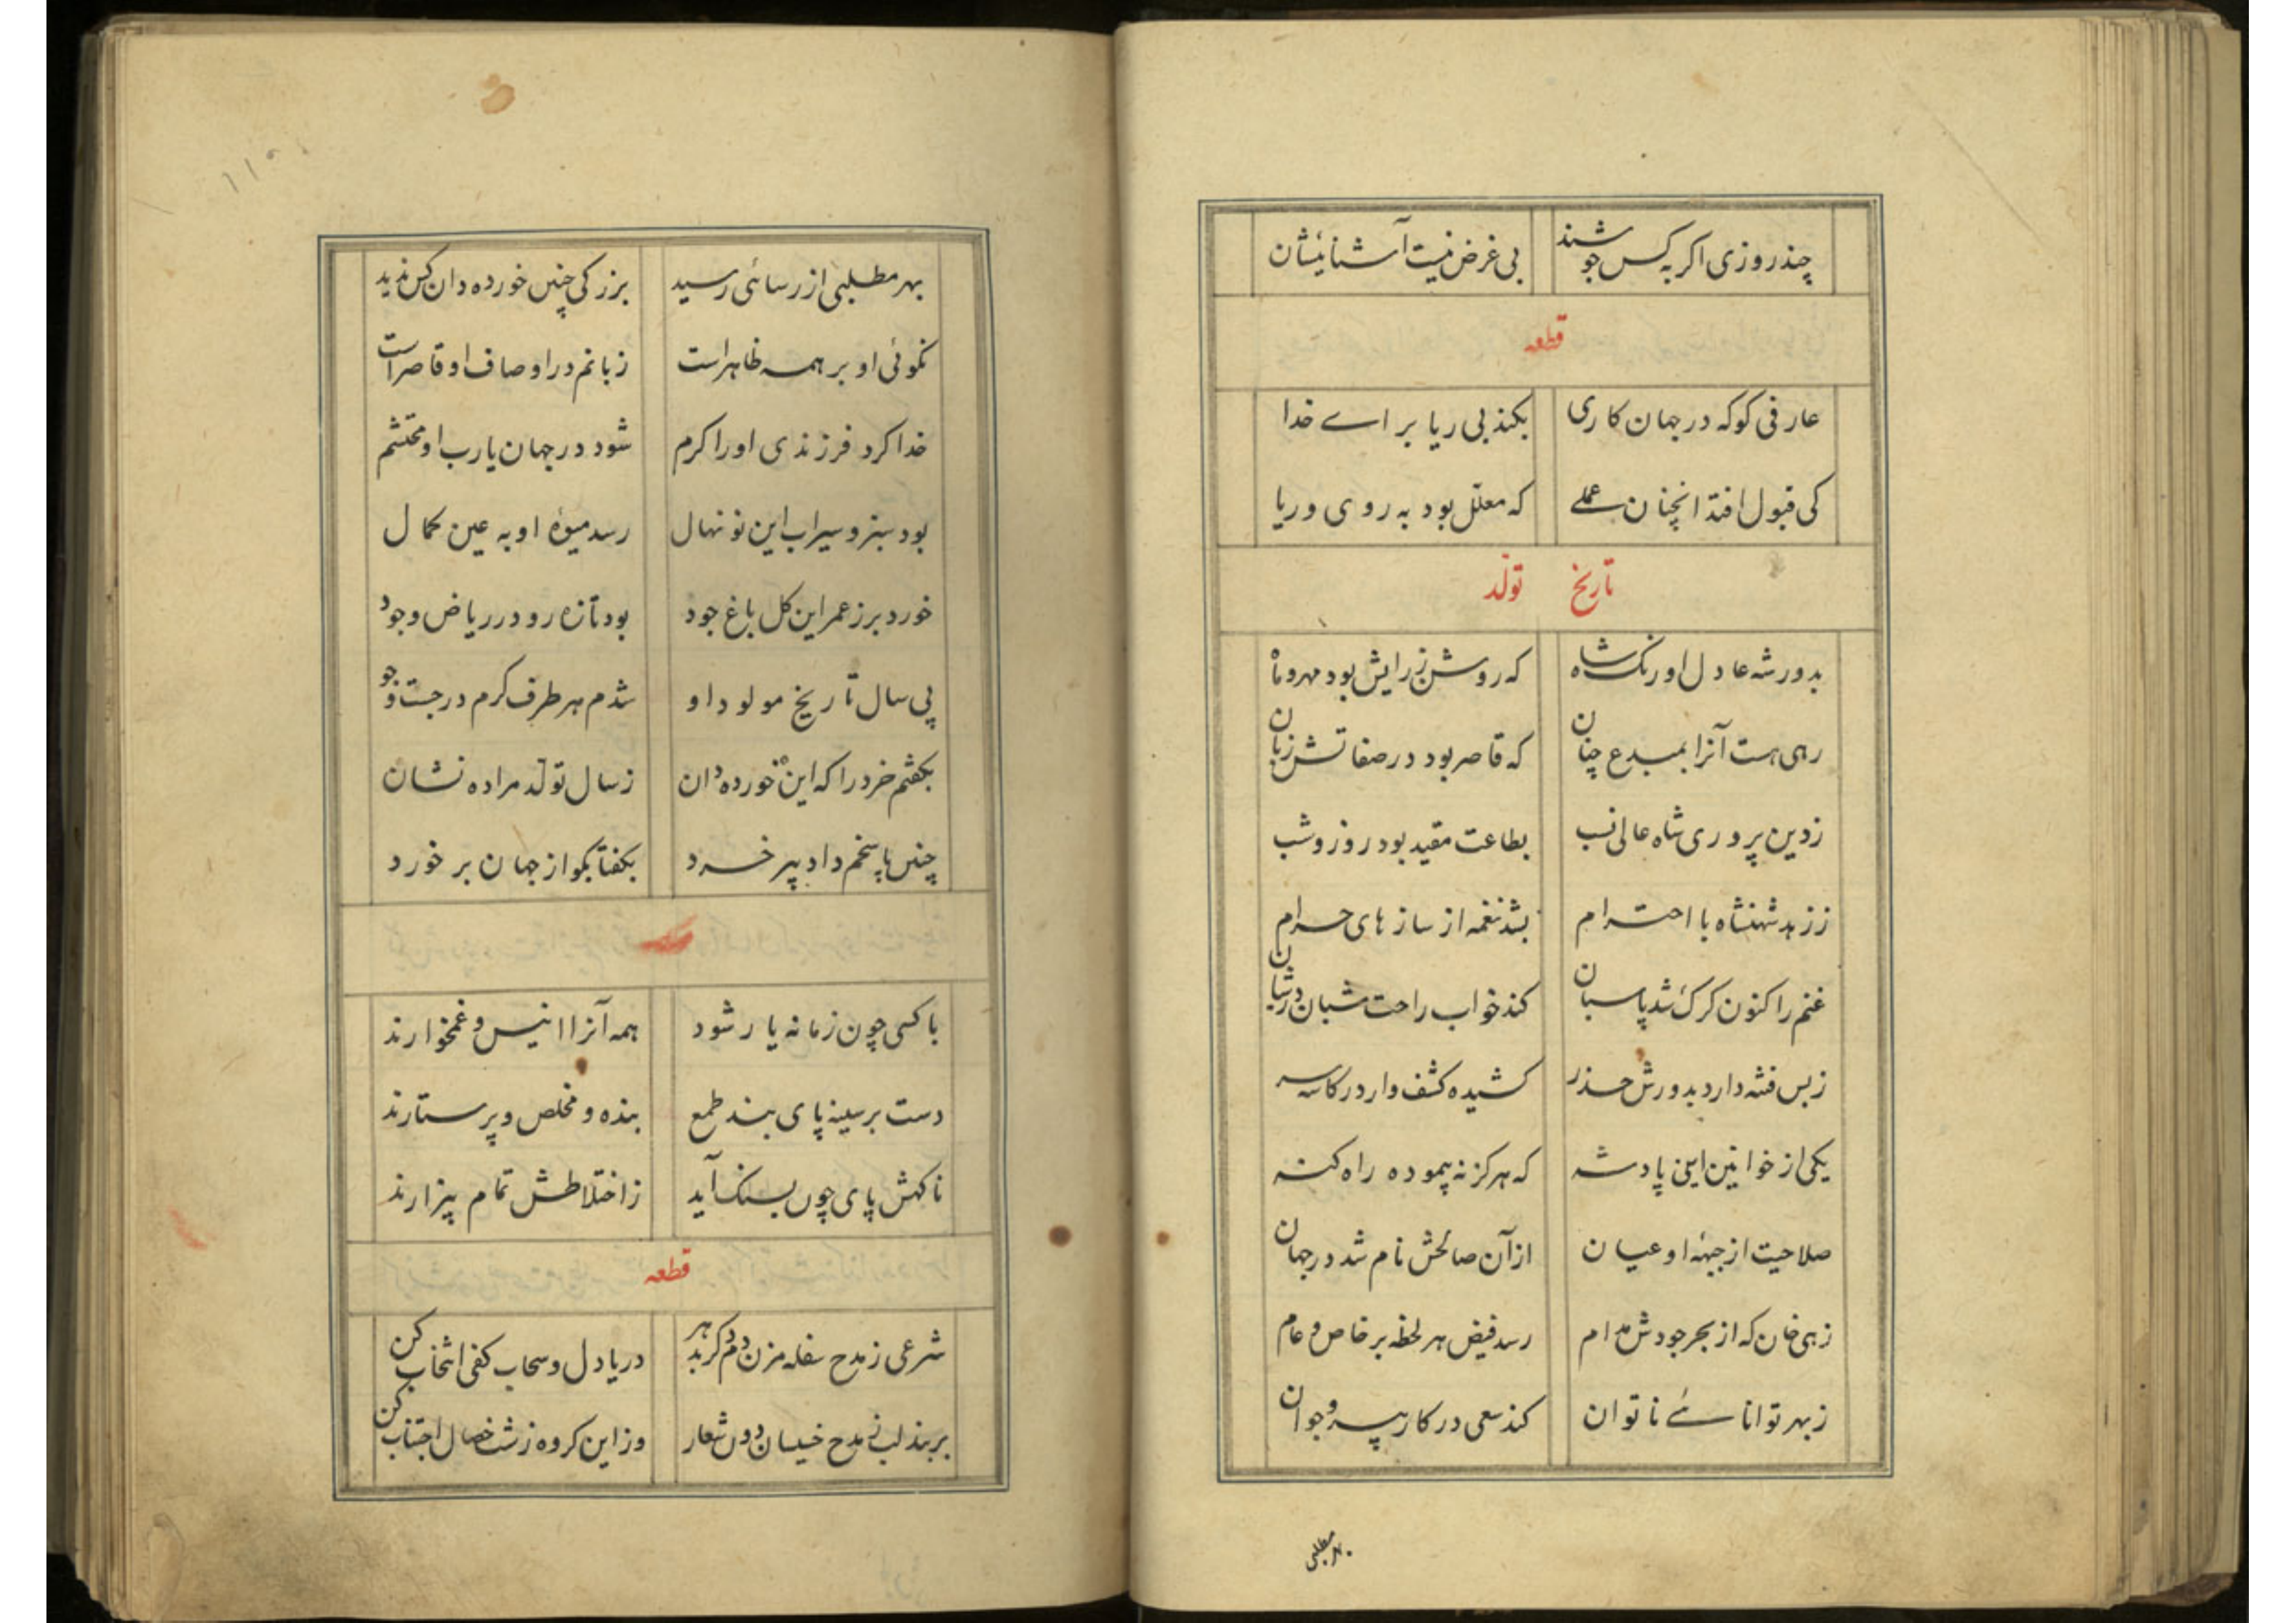 چند روزی اکر به کس جوشند بی غرض نیست آشنائیشان
قطعه
عارفی کو که در جهان کاری بکند بی ریا برای خدا
کی قبول افتد انچنان عملے که معلّل بود به روی و ریا
تاریخ تولّد
بدور شه عادل اورنک شاه که روشن ز رایش بود مهر و ماه
رهی هست آنرا بمبدع چنان که قاصر بود در صفاتش زبان
ز دین پروری شاه عالی نسب بطاعت مقید بود روز و شب
ز زهد شهنشاه با احترام بشد نغمه از سازهای حرام
غنم را کنون کرک شد پاسبان کند خواب راحت شبان در شبان
ز بس فتنه دارد بدورش حذر کشیده کشف وار در کاسه سر
یکی از خوانین این پادشه که هرکز نه پیموده راه کنه
صلاحیت از جبهٔ او عیان از آن صالحش نام شد در جهان
زهی خان که از بحر جودش مدام رسد فیض هر لحظه بر خاص و عام
ز بهر توانائے ناتوان کند سعی در کار پیر و جوان
بهر مطلبی
۱۱۹
بهر مطلبی از رسائی رسید بزرکی چنین خورده دان کس ندید
نکوئی او بر همه ظاهر است زبانم در اوصاف او قاصر است
خدا کرد فرزندی او را کرم شود در جهان یا رب او محتشم
بود سبز و سیراب این نونهال رسد میوهٔ او به عین کمال
خورد بر ز عمر این کل باغ جود بود تازه رو در ریاض وجود
پی سال تاریخ مولود او شدم هر طرف کرم در جست و جو
بکفتم خرد را که این خورده دان ز سال تولّد مرا ده نشان
چنین پاسخم داد پیر خرد بکفتا بکو از جهان بر خورد
با کسی چون زمانه یار شود همه آنرا انیس و غمخوارند
دست بر سینه پای بند طمع بنده و مخلص و پرستارند
ناکهش پای چون بسنک آید ز اختلاطش تمام بیزارند
قطعه
شرعی ز مدح سفله مزن دم کر بد هر دریا دل و سحاب کفی انتخاب کن
بربند لب ز مدح خسیسان دون شعار وز این کروه زشت خصال اجتناب کن